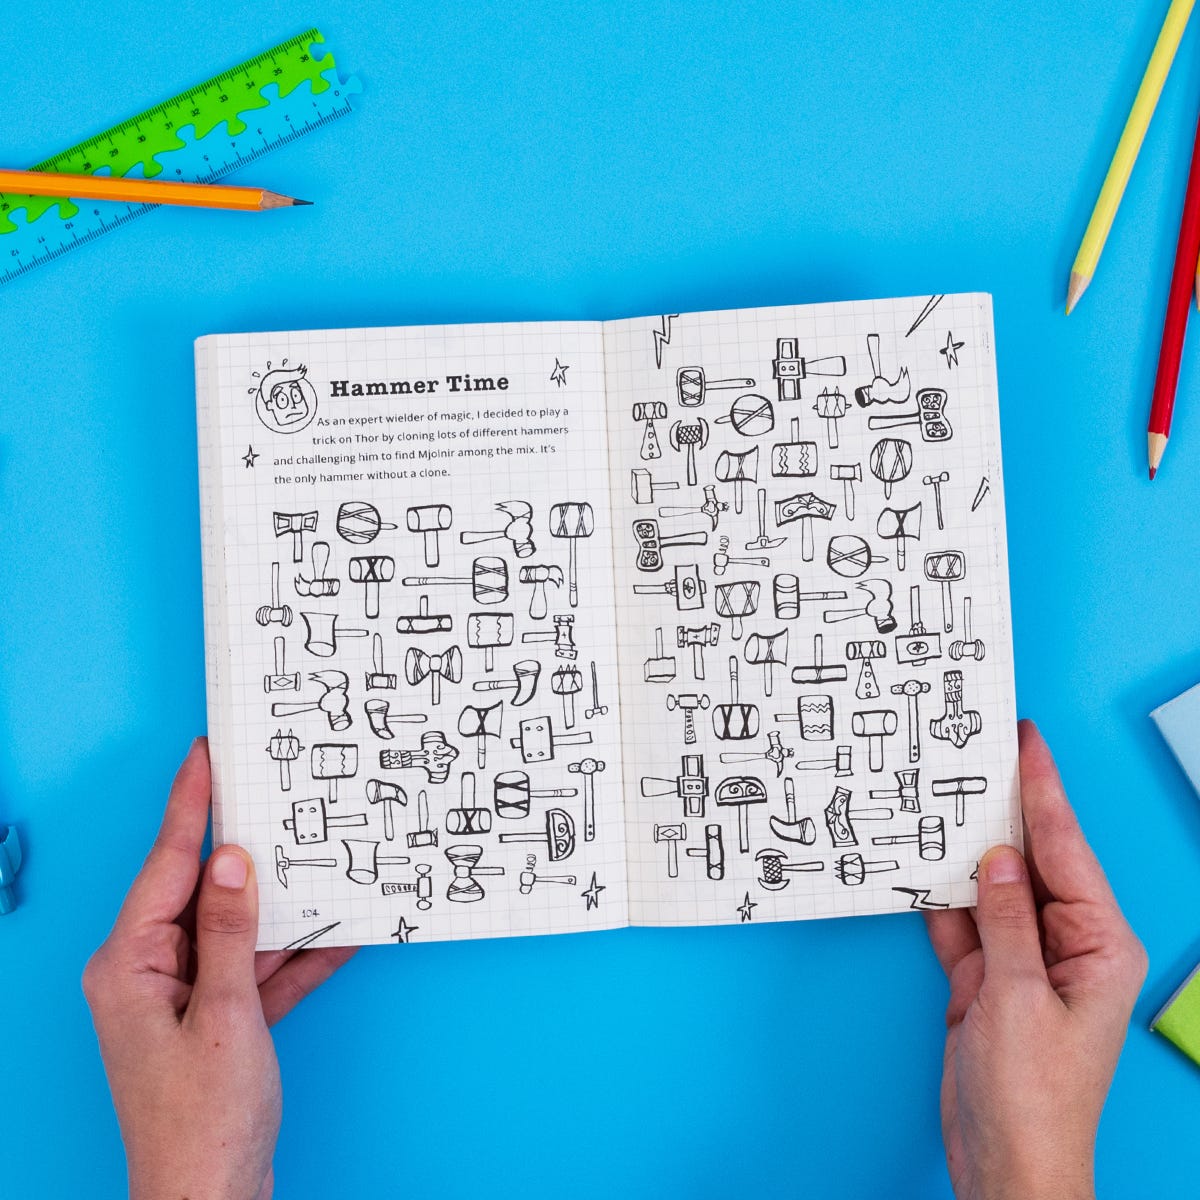 36 35 34 33 32 31 30 29 28
0 1 2 3 4 5 6 9 10 11 12
Hammer Time
As an expert wielder of magic, I decided to play a
trick on Thor by cloning lots of different hammers
and challenging him to find Mjolnir among the mix. It's
the only hammer without a clone.
104